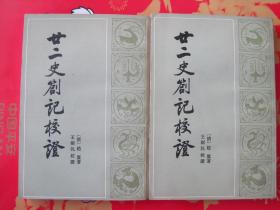 廿二史劄記校證
〔清〕趙翼著
王樹民校證
廿二史劄記校證
〔清〕趙翼著
王樹民校證